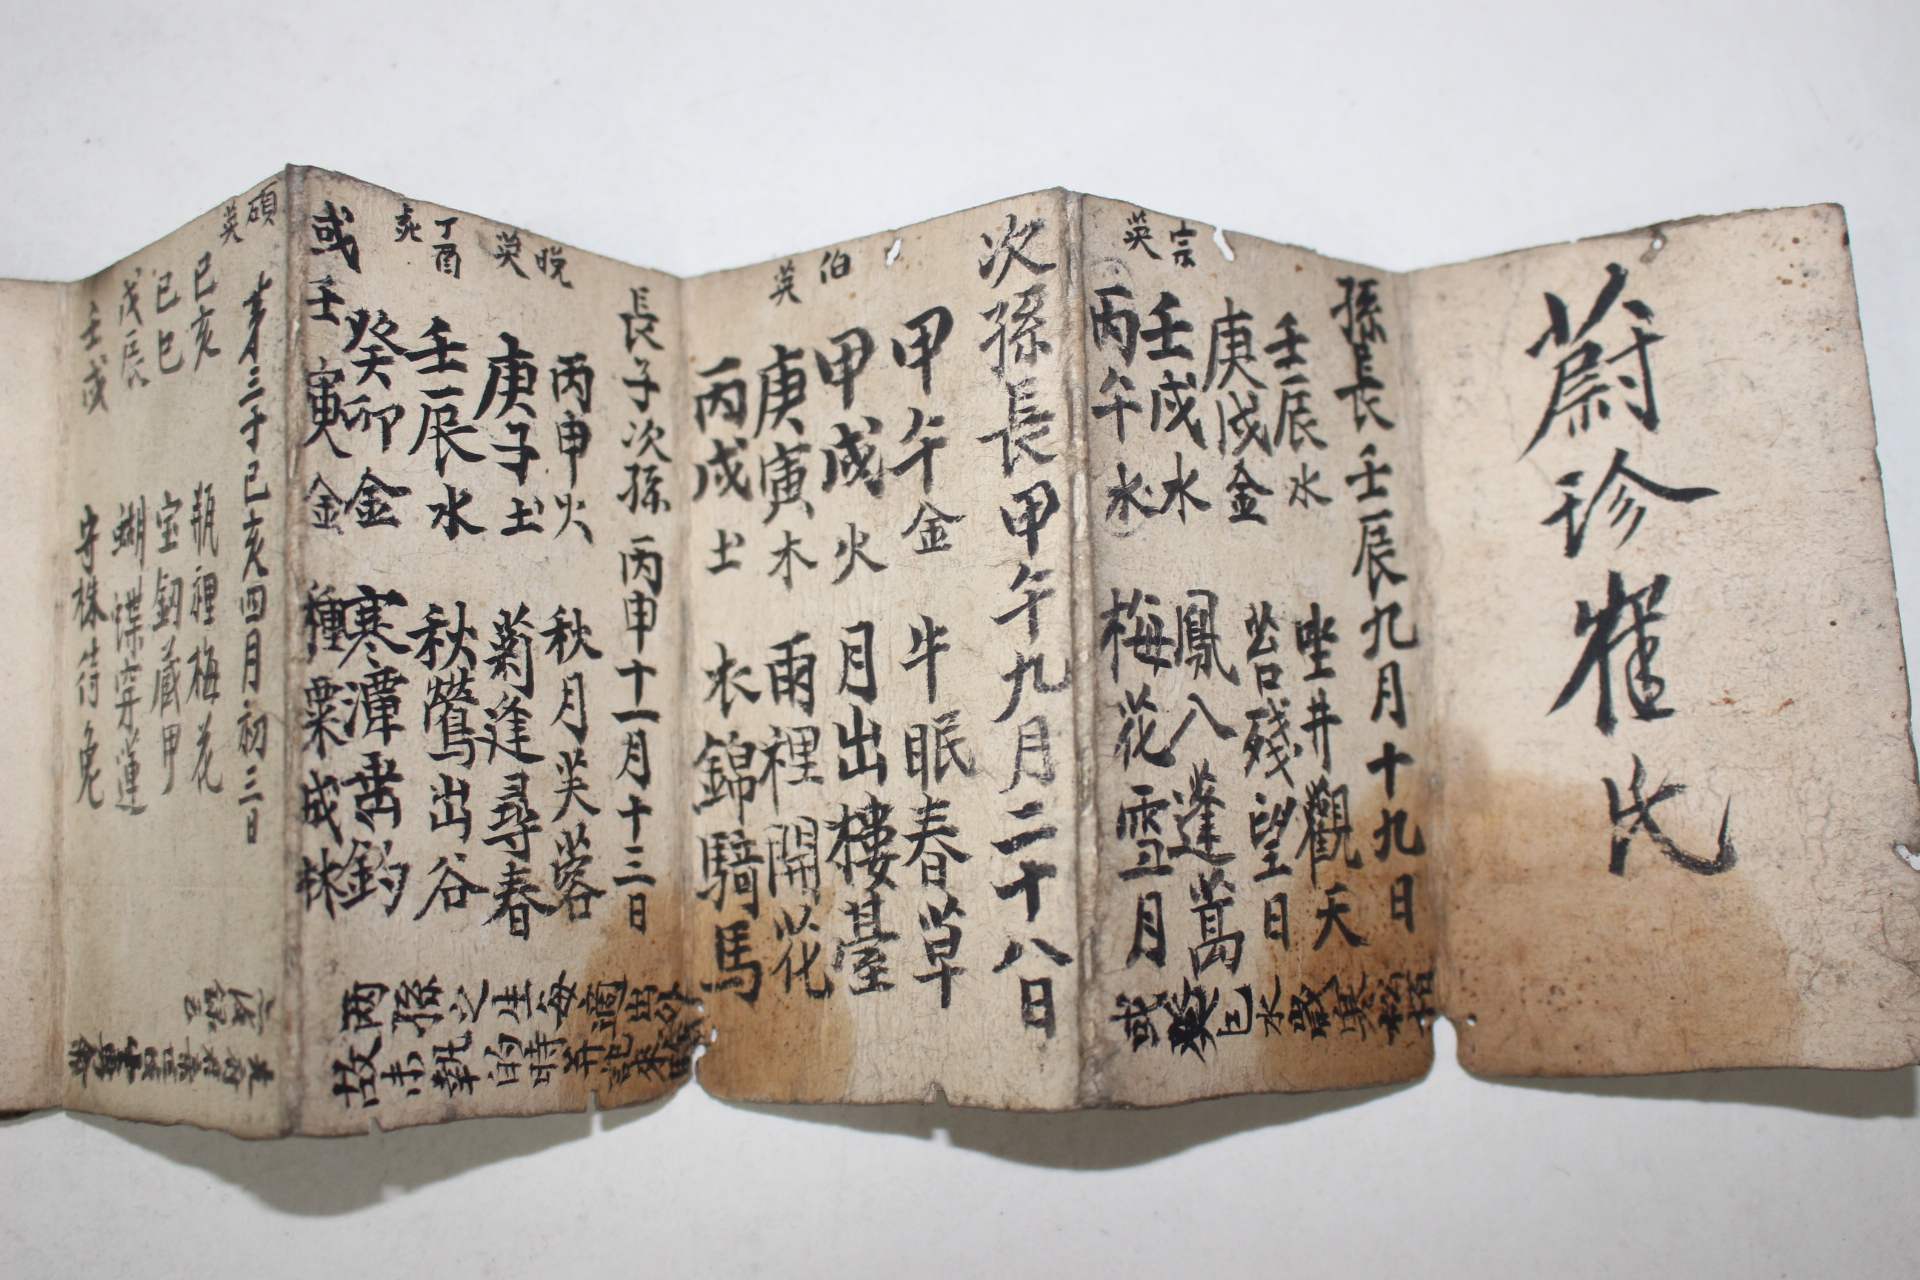 蔚珍崔氏
孫長壬辰九月十九日
壬辰水 坐井觀天
庚戌金 岧殘望日
宗英
壬戌水 鳳八蓬萵
丙午水 梅花雪月
次孫長甲午九月二十八日
甲午金 牛眠春草
甲戌火 月出樓臺
伯英
庚寅木 雨裡開花
丙戌土 衣錦騎馬
長子次孫丙申十一月十三日
丙申火 秋月芙蓉
晚英
庚子土 菊逢尋春
丁酉
壬辰水 秋鶯出谷
癸卯金 寒潭垂釣
或壬寅金 種粟成林
每時
生的
之
孫
兩
故
第三子己亥四月初三日
碩英
己亥 瓶裡梅花
己巳 宝釰藏甲
戊辰 蝴蝶穿蓮
壬戌 守株待兔